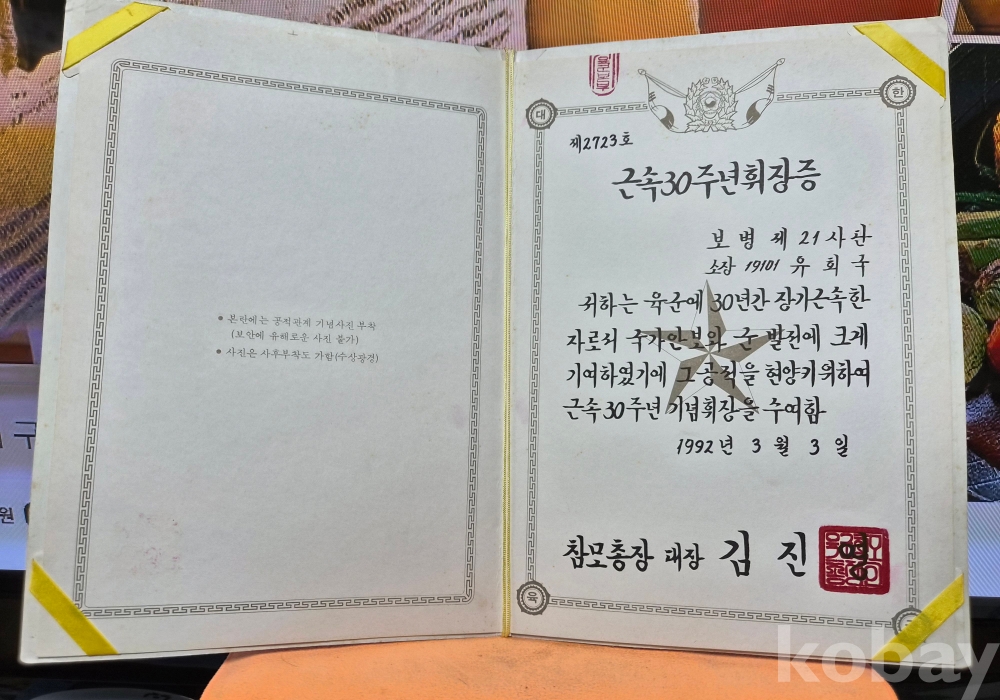 ● 본란에는 공적관계 기념사진 부착
(보안에 유해로운 사진 불가)
● 사진은 사후부착도 가함(수상광경)
육군본부
대
한
제2723호
근속30주년휘장증
보병 제21사단
소장 19101 유회국
귀하는 육군에 30년간 장기근속한
자로서 국가안보와 군 발전에 크게
기여하였기에 그 공적을 현양키 위하여
근속30주년 기념휘장을 수여함
1992년 3월 3일
참모총장 대장 김진영
육
kobay